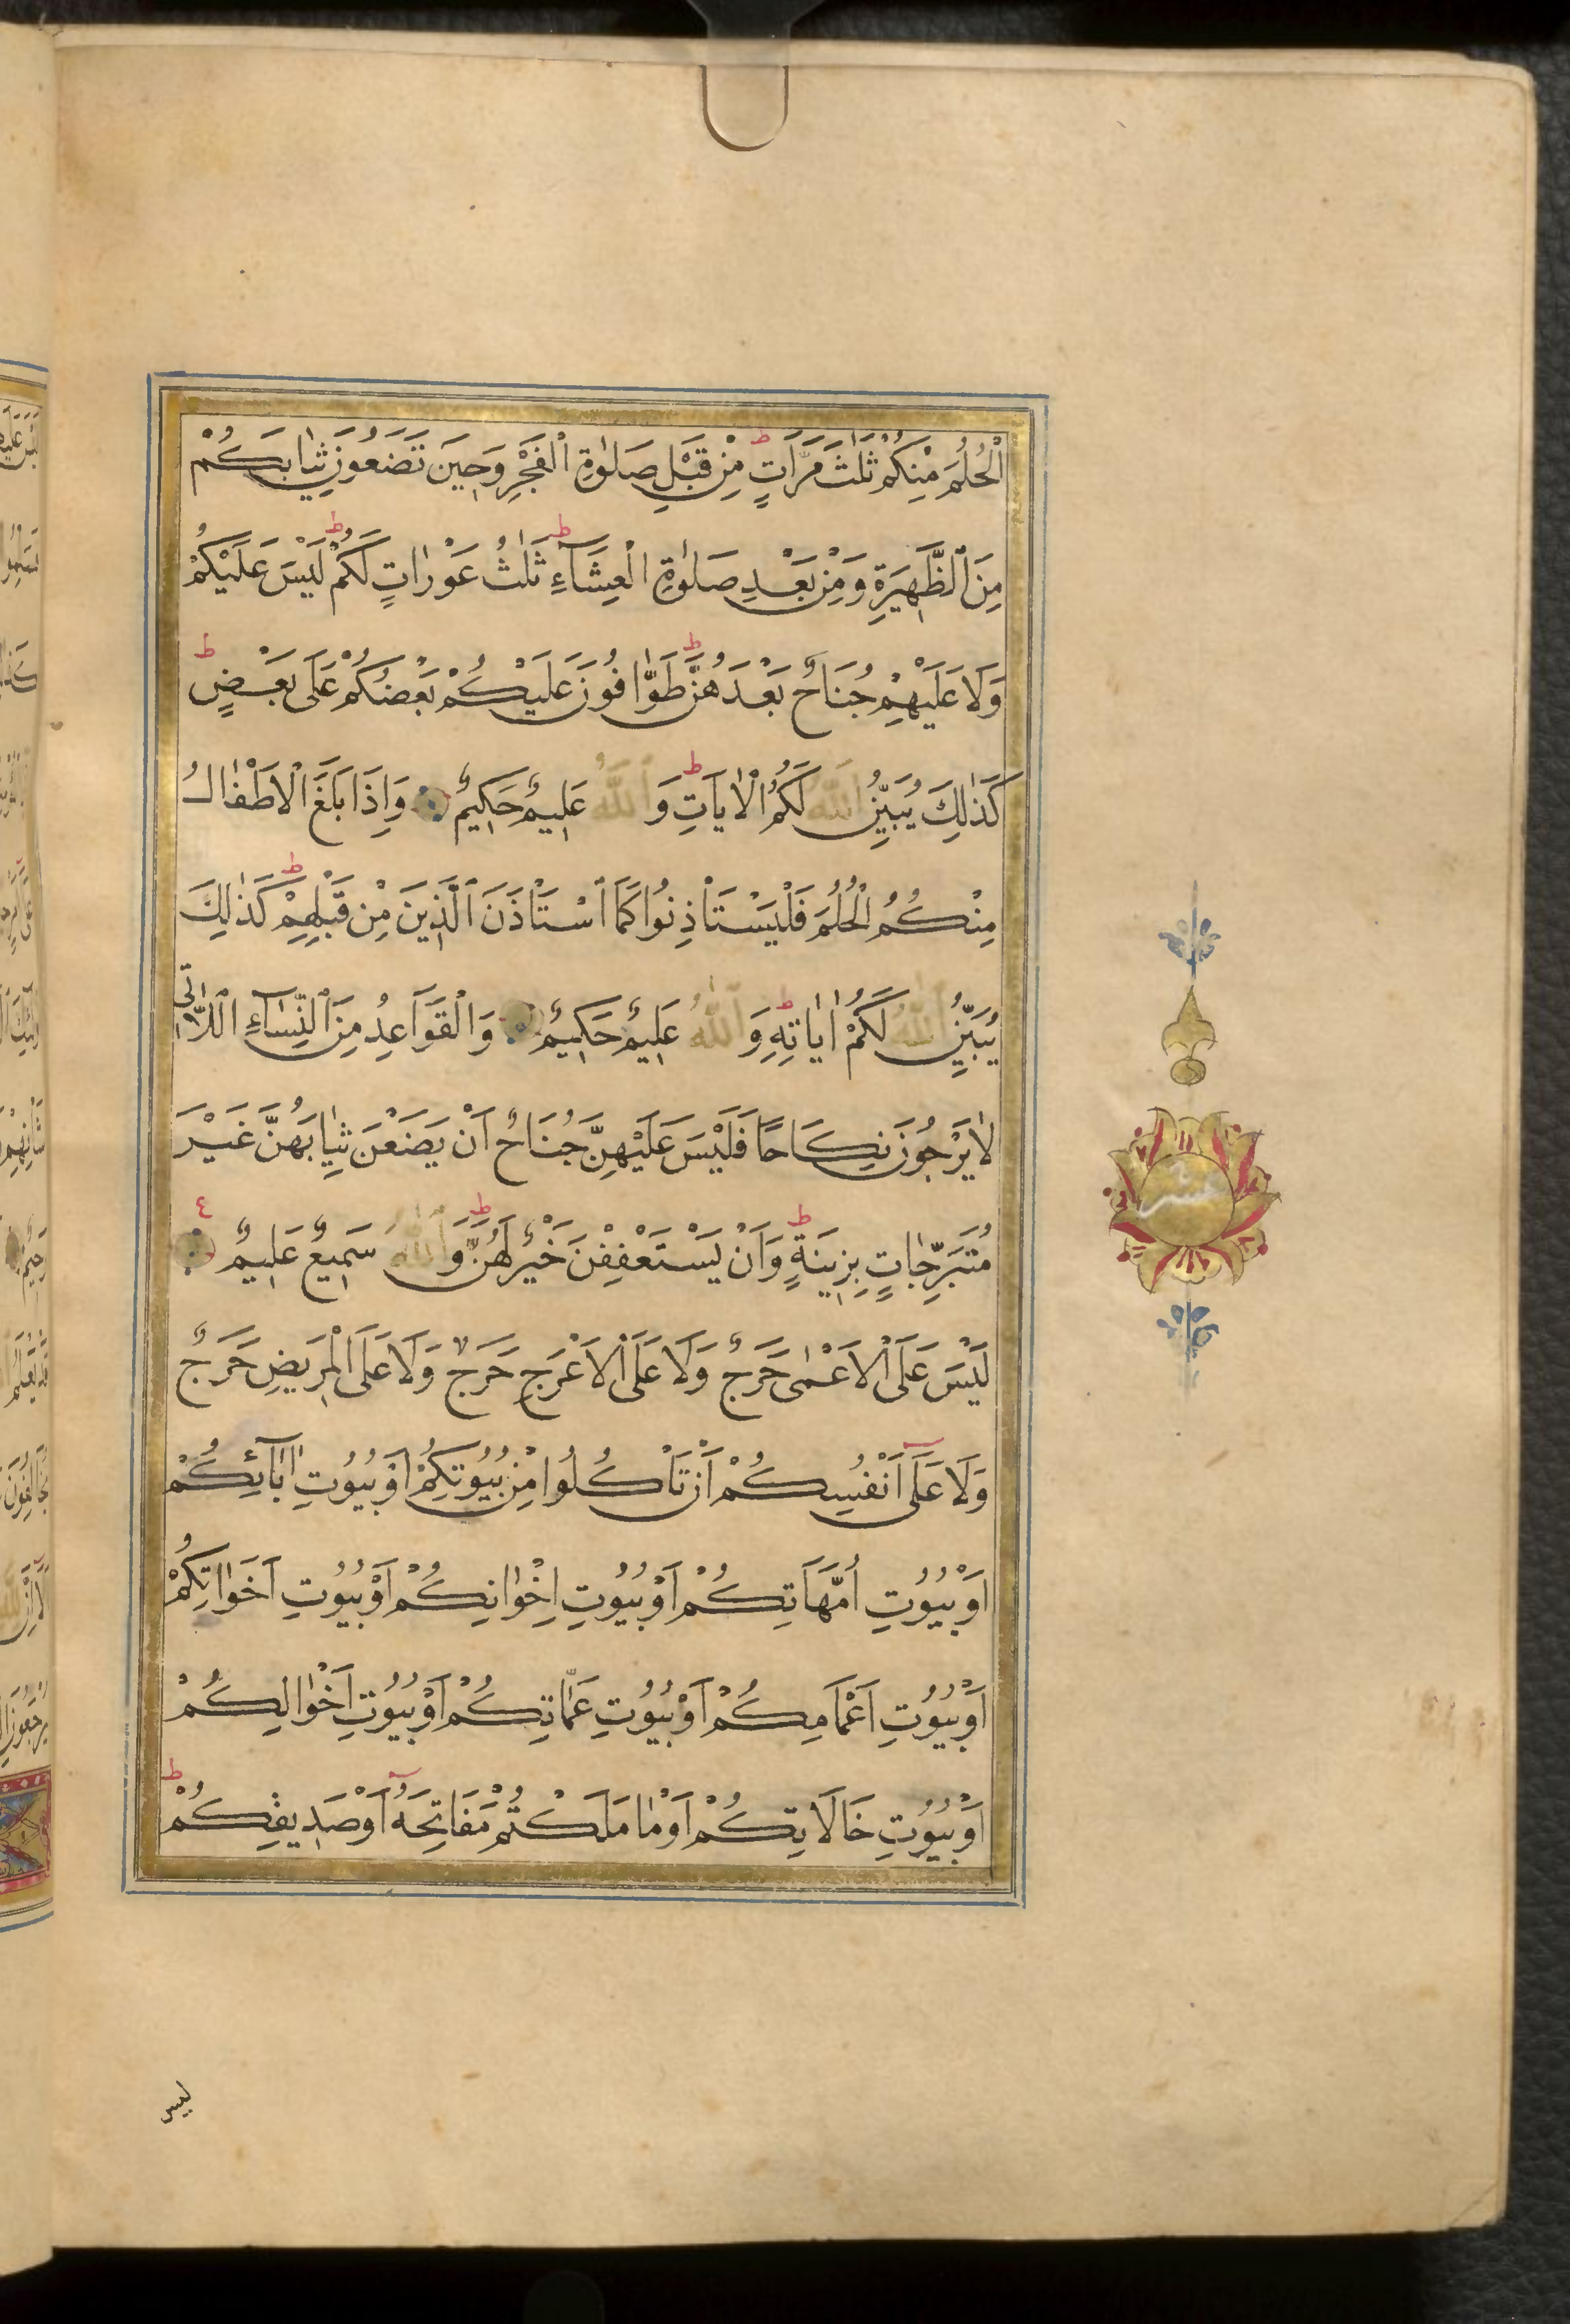 الْحُلُمَ مِنْكُمْ ثَلٰثَ مَرَّاتٍ ط مِنْ قَبْلِ صَلٰوةِ الْفَجْرِ وَحِينَ تَضَعُونَ ثِيٰابَكُمْ
مِنَ الظَّهِيرَةِ وَمِنْ بَعْدِ صَلٰوةِ الْعِشَآءِ ط ثَلٰثُ عَوْرٰاتٍ لَكُمْ ط لَيْسَ عَلَيْكُمْ
وَلَا عَلَيْهِمْ جُنَاحٌ بَعْدَهُنَّ ط طَوّٰافُونَ عَلَيْكُمْ بَعْضُكُمْ عَلَى بَعْضٍ ط
كَذٰلِكَ يُبَيِّنُ اللّٰهُ لَكُمُ الْاٰيَاتِ ط وَاللّٰهُ عَلِيمٌ حَكِيمٌ وَاِذَا بَلَغَ الْاَطْفٰالُ
مِنْكُمُ الْحُلُمَ فَلْيَسْتَاْذِنُوا كَمَا اسْتَاْذَنَ الَّذِينَ مِنْ قَبْلِهِمْ ط كَذٰلِكَ
يُبَيِّنُ اللّٰهُ لَكُمْ اٰيٰاتِهِ ط وَاللّٰهُ عَلِيمٌ حَكِيمٌ وَالْقَوَاعِدُ مِنَ النِّسٰآءِ اللّٰاتِى
لٰا يَرْجُونَ نِكَاحًا فَلَيْسَ عَلَيْهِنَّ جُنَاحٌ اَنْ يَضَعْنَ ثِيٰابَهُنَّ غَيْرَ
مُتَبَرِّجٰاتٍ بِزِينَةٍ ط وَاَنْ يَسْتَعْفِفْنَ خَيْرٌ لَهُنَّ ط وَاللّٰهُ سَمِيعٌ عَلِيمٌ ع
لَيْسَ عَلَى الْاَعْمٰى حَرَجٌ وَلَا عَلَى الْاَعْرَجِ حَرَجٌ وَلَا عَلَى الْمَرِيضِ حَرَجٌ
وَلَا عَلَى اَنْفُسِكُمْ اَنْ تَاْكُلُوا مِنْ بُيُوتِكُمْ اَوْ بُيُوتِ اٰبَآئِكُمْ
اَوْ بُيُوتِ اُمَّهَاتِكُمْ اَوْ بُيُوتِ اِخْوٰانِكُمْ اَوْ بُيُوتِ اَخَوٰاتِكُمْ
اَوْ بُيُوتِ اَعْمَامِكُمْ اَوْ بُيُوتِ عَمّٰاتِكُمْ اَوْ بُيُوتِ اَخْوٰالِكُمْ
اَوْ بُيُوتِ خَالَاتِكُمْ اَوْ مٰا مَلَكْتُمْ مَفَاتِحَهُ اَوْ صَدِيقِكُمْ ط
ليس